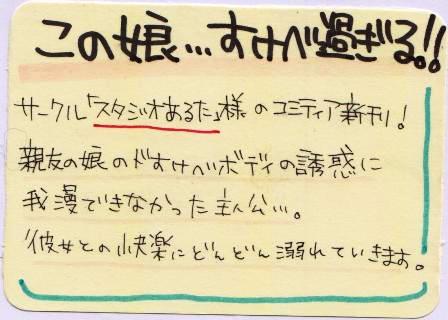 この娘…すけべ過ぎる。!!
サークル「スタジオあるた」様のコミティア新刊!
親友の娘のドすけべボディの誘惑に
我慢できなかった主人公…。
彼女との快楽にどんどん溺れていきます。